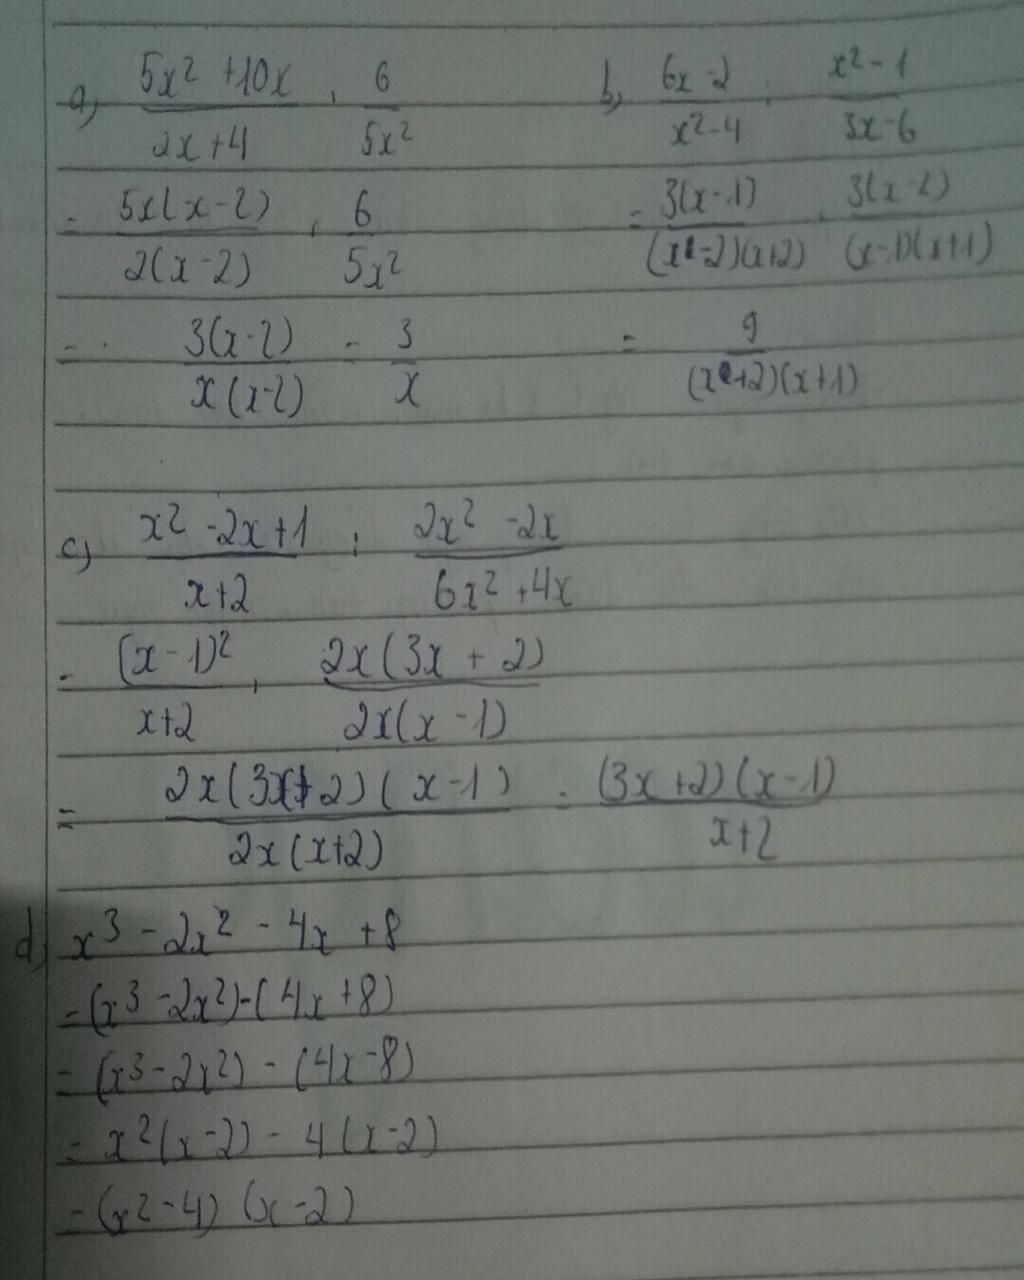 a) (5x² + 10x)/(2x + 4) . 6/(5x²)
= 5x(x - 2)/(2(x - 2)) . 6/(5x²)
= 3(x - 2)/(x(x - 2)) = 3/x
b) (6x - 2)/(x² - 4) : (x² - 1)/(3x - 6)
= 3(x - 1)/((x - 2)(x + 2)) . 3(x - 2)/((x - 1)(x + 1))
= 9/((x + 2)(x + 1))
c) (x² - 2x + 1)/(x + 2) : (2x² - 2x)/(6x² + 4x)
= (x - 1)²/(x + 2) . 2x(3x + 2)/(2x(x - 1))
= 2x(3x + 2)(x - 1)/(2x(x + 2)) = (3x + 2)(x - 1)/(x + 2)
d) x³ - 2x² - 4x + 8
= (x³ - 2x²) - (4x + 8)
= (x³ - 2x²) - (4x - 8)
= x²(x - 2) - 4(x - 2)
= (x² - 4)(x - 2)